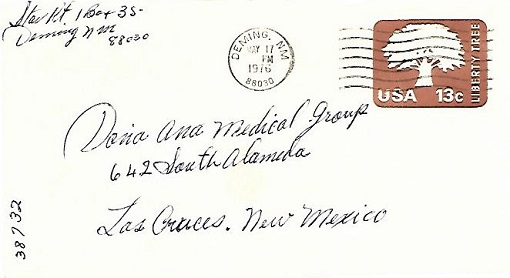 Star Rt. 1 Box 35-
Deming N M
88030
DEMING, NM
MAY 17
PM
1976
88030
USA 13c
LIBERTY TREE
Dona Ana Medical Group
642 South Alameda
Las Cruces, New Mexico
38732